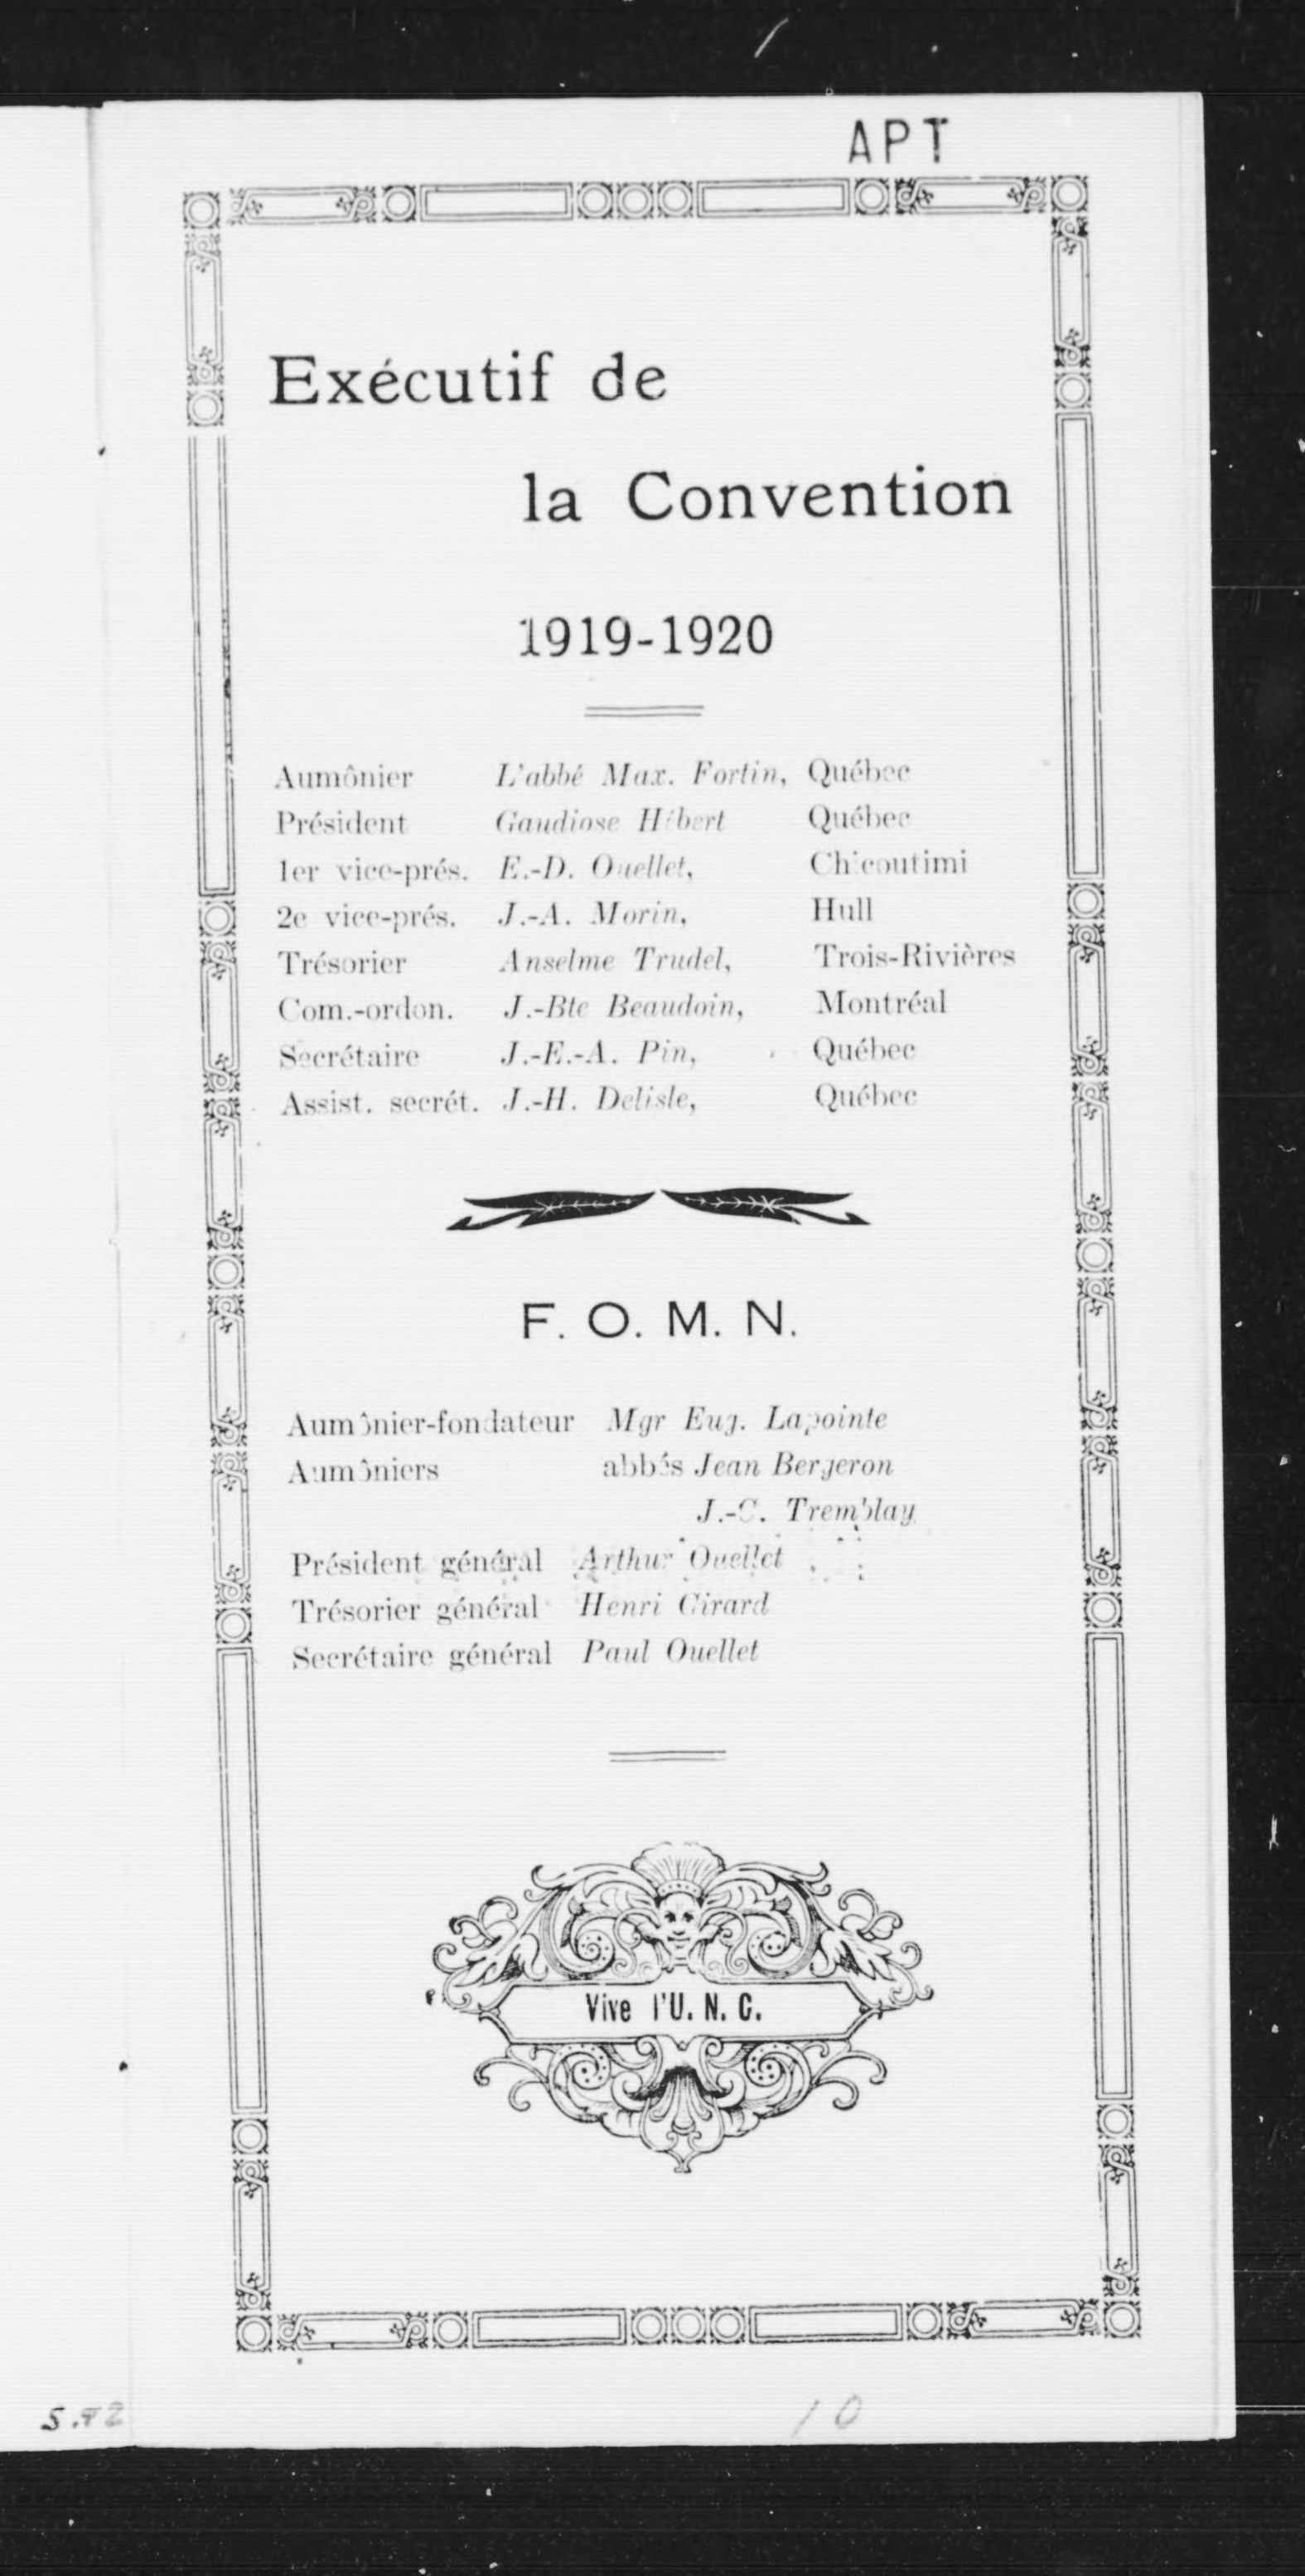 APT
Exécutif de
la Convention
1919-1920
Aumônier L'abbé Max. Fortin, Québec
Président Gaudiose Hébert Québec
1er vice-prés. E.-D. Ouellet, Chicoutimi
2e vice-prés. J.-A. Morin, Hull
Trésorier Anselme Trudel, Trois-Rivières
Com.-ordon. J.-Bte Beaudoin, Montréal
Secrétaire J.-E.-A. Pin, Québec
Assist. secrét. J.-H. Delisle, Québec
F. O. M. N.
Aumônier-fondateur Mgr Eug. Lapointe
Aumôniers abbés Jean Bergeron
J.-C. Tremblay
Président général Arthur Ouellet
Trésorier général Henri Girard
Secrétaire général Paul Ouellet
Vive l'U. N. C.
10